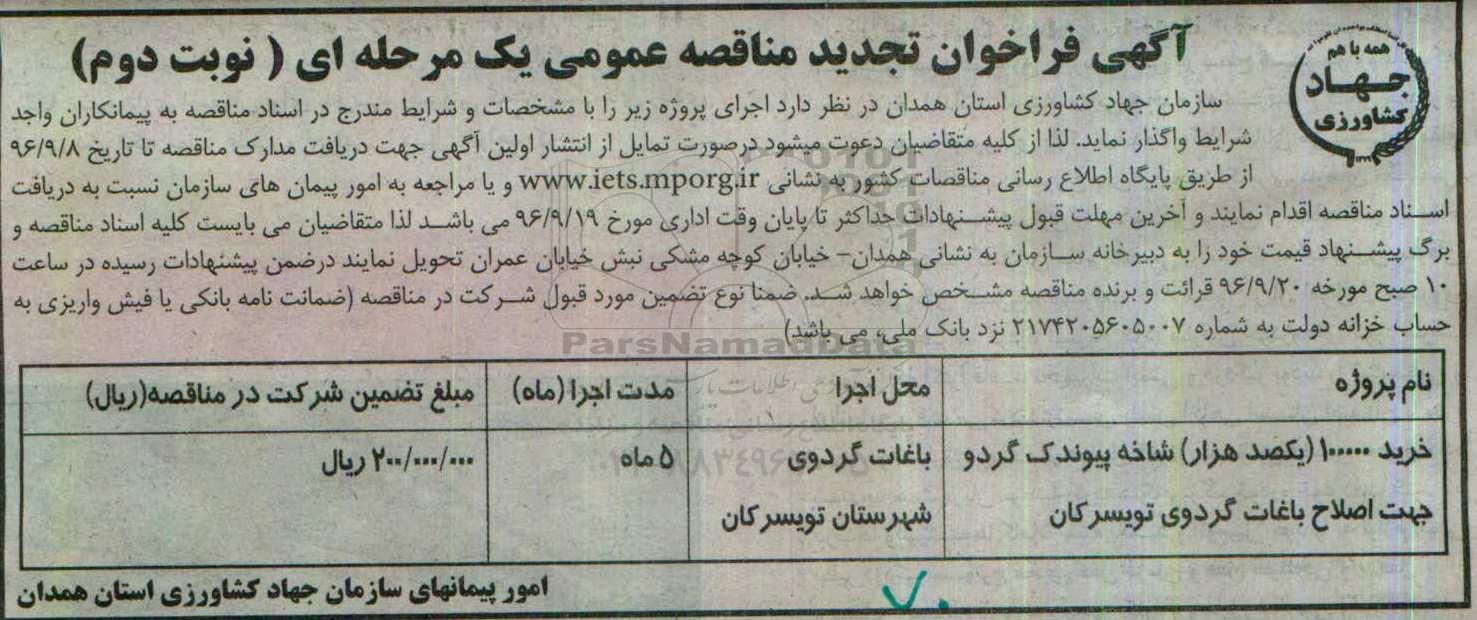 همه با هم
جهاد
کشاورزی
آگهی فراخوان تجدید مناقصه عمومی یک مرحله ای ( نوبت دوم)
سازمان جهاد کشاورزی استان همدان در نظر دارد اجرای پروژه زیر را با مشخصات و شرایط مندرج در اسناد مناقصه به پیمانکاران واجد
شرایط واگذار نماید. لذا از کلیه متقاضیان دعوت میشود درصورت تمایل از انتشار اولین آگهی جهت دریافت مدارک مناقصه تا تاریخ ۹۶/۹/۸
از طریق پایگاه اطلاع رسانی مناقصات کشور به نشانی www.iets.mporg.ir و یا مراجعه به امور پیمان های سازمان نسبت به دریافت
اسناد مناقصه اقدام نمایند و آخرین مهلت قبول پیشنهادات حداکثر تا پایان وقت اداری مورخ ۹۶/۹/۱۹ می باشد لذا متقاضیان می بایست کلیه اسناد مناقصه و
برگ پیشنهاد قیمت خود را به دبیرخانه سازمان به نشانی همدان- خیابان کوچه مشکی نبش خیابان عمران تحویل نمایند درضمن پیشنهادات رسیده در ساعت
۱۰ صبح مورخه ۹۶/۹/۲۰ قرائت و برنده مناقصه مشخص خواهد شد. ضمنا نوع تضمین مورد قبول شرکت در مناقصه (ضمانت نامه بانکی یا فیش واریزی به
حساب خزانه دولت به شماره ۲۱۷۴۲۰۵۶۰۵۰۰۷ نزد بانک ملی، می باشد)
ParsNamadData
نام پروژه محل اجرا مدت اجرا (ماه) مبلغ تضمین شرکت در مناقصه(ریال)
خرید ۱۰۰۰۰۰ (یکصد هزار) شاخه پیوندک گردو باغات گردوی ۵ ماه ۲۰۰/۰۰۰/۰۰۰ ریال
جهت اصلاح باغات گردوی تویسرکان شهرستان تویسرکان
امور پیمانهای سازمان جهاد کشاورزی استان همدان
۷۰